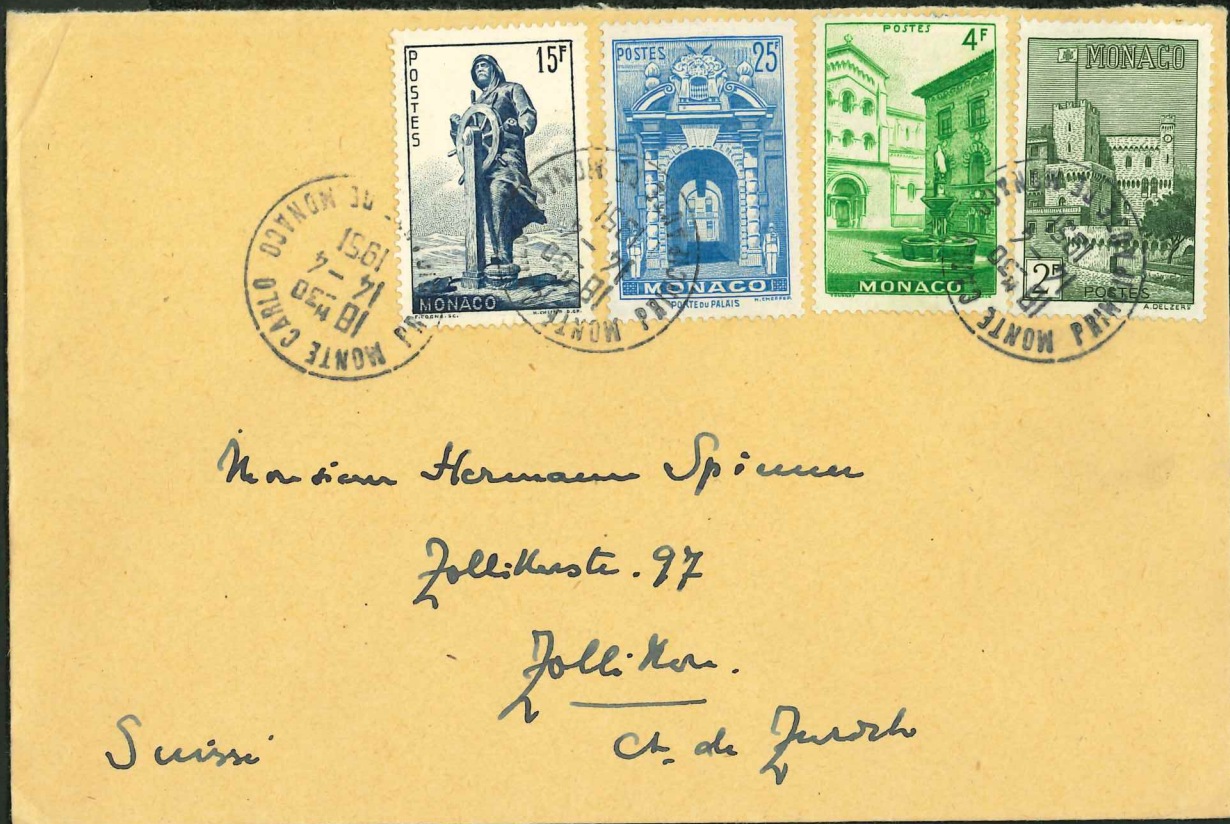 POSTES
15F
MONACO
POSTES
25F
MONACO
PORTE DU PALAIS
H. CHEFFER
POSTES
4F
MONACO
MONACO
2F
POSTES
A. DELZERS
MONTE CARLO
PRINCIPAUTE DE MONACO
18H30
14-4
1951
Monsieur Hermann Spinner
Zollikerstr. 97
Zollikon.
Ct. de Zurich
Suisse